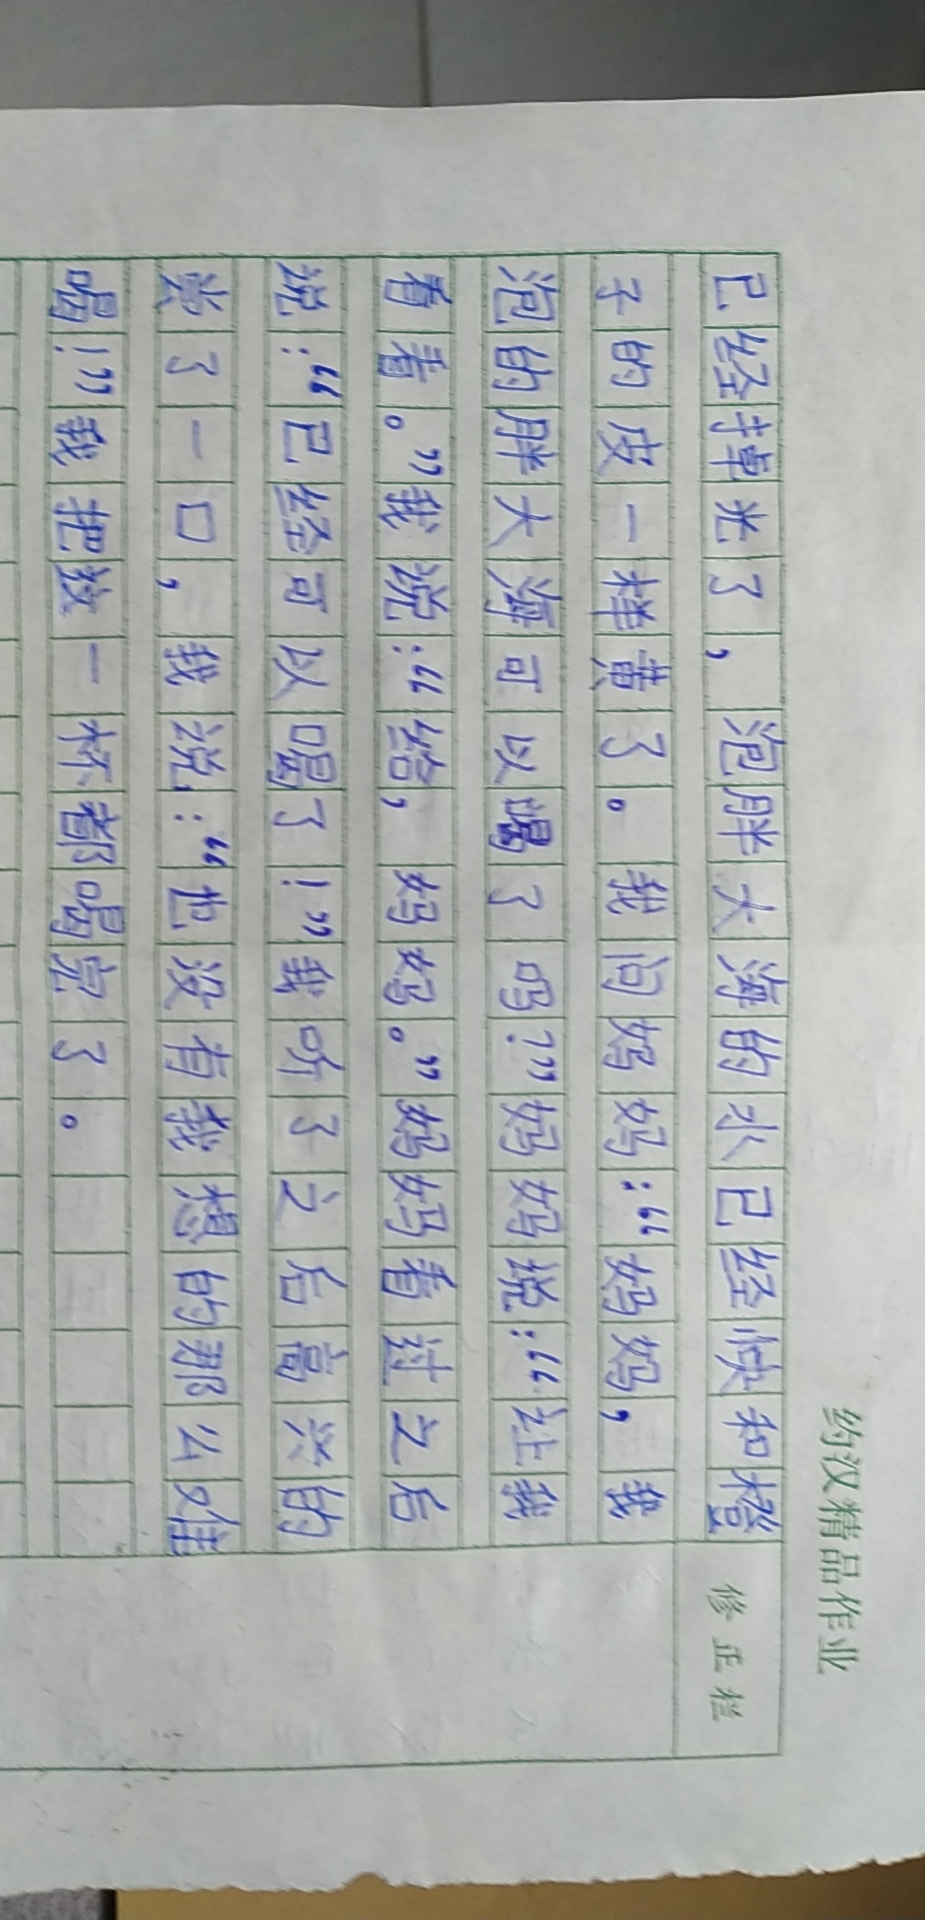 约汉精品作业
修正栏
已经掉光了，泡胖大海的水已经快和橙
子的皮一样黄了。我问妈妈：“妈妈，我
泡的胖大海可以喝了吗？”妈妈说：“让我
看看。”我说：“给，妈妈。”妈妈看过之后
说：“已经可以喝了！”我听了之后高兴的
尝了一口，我说：“也没有我想的那么难
喝！”我把这一杯都喝完了。